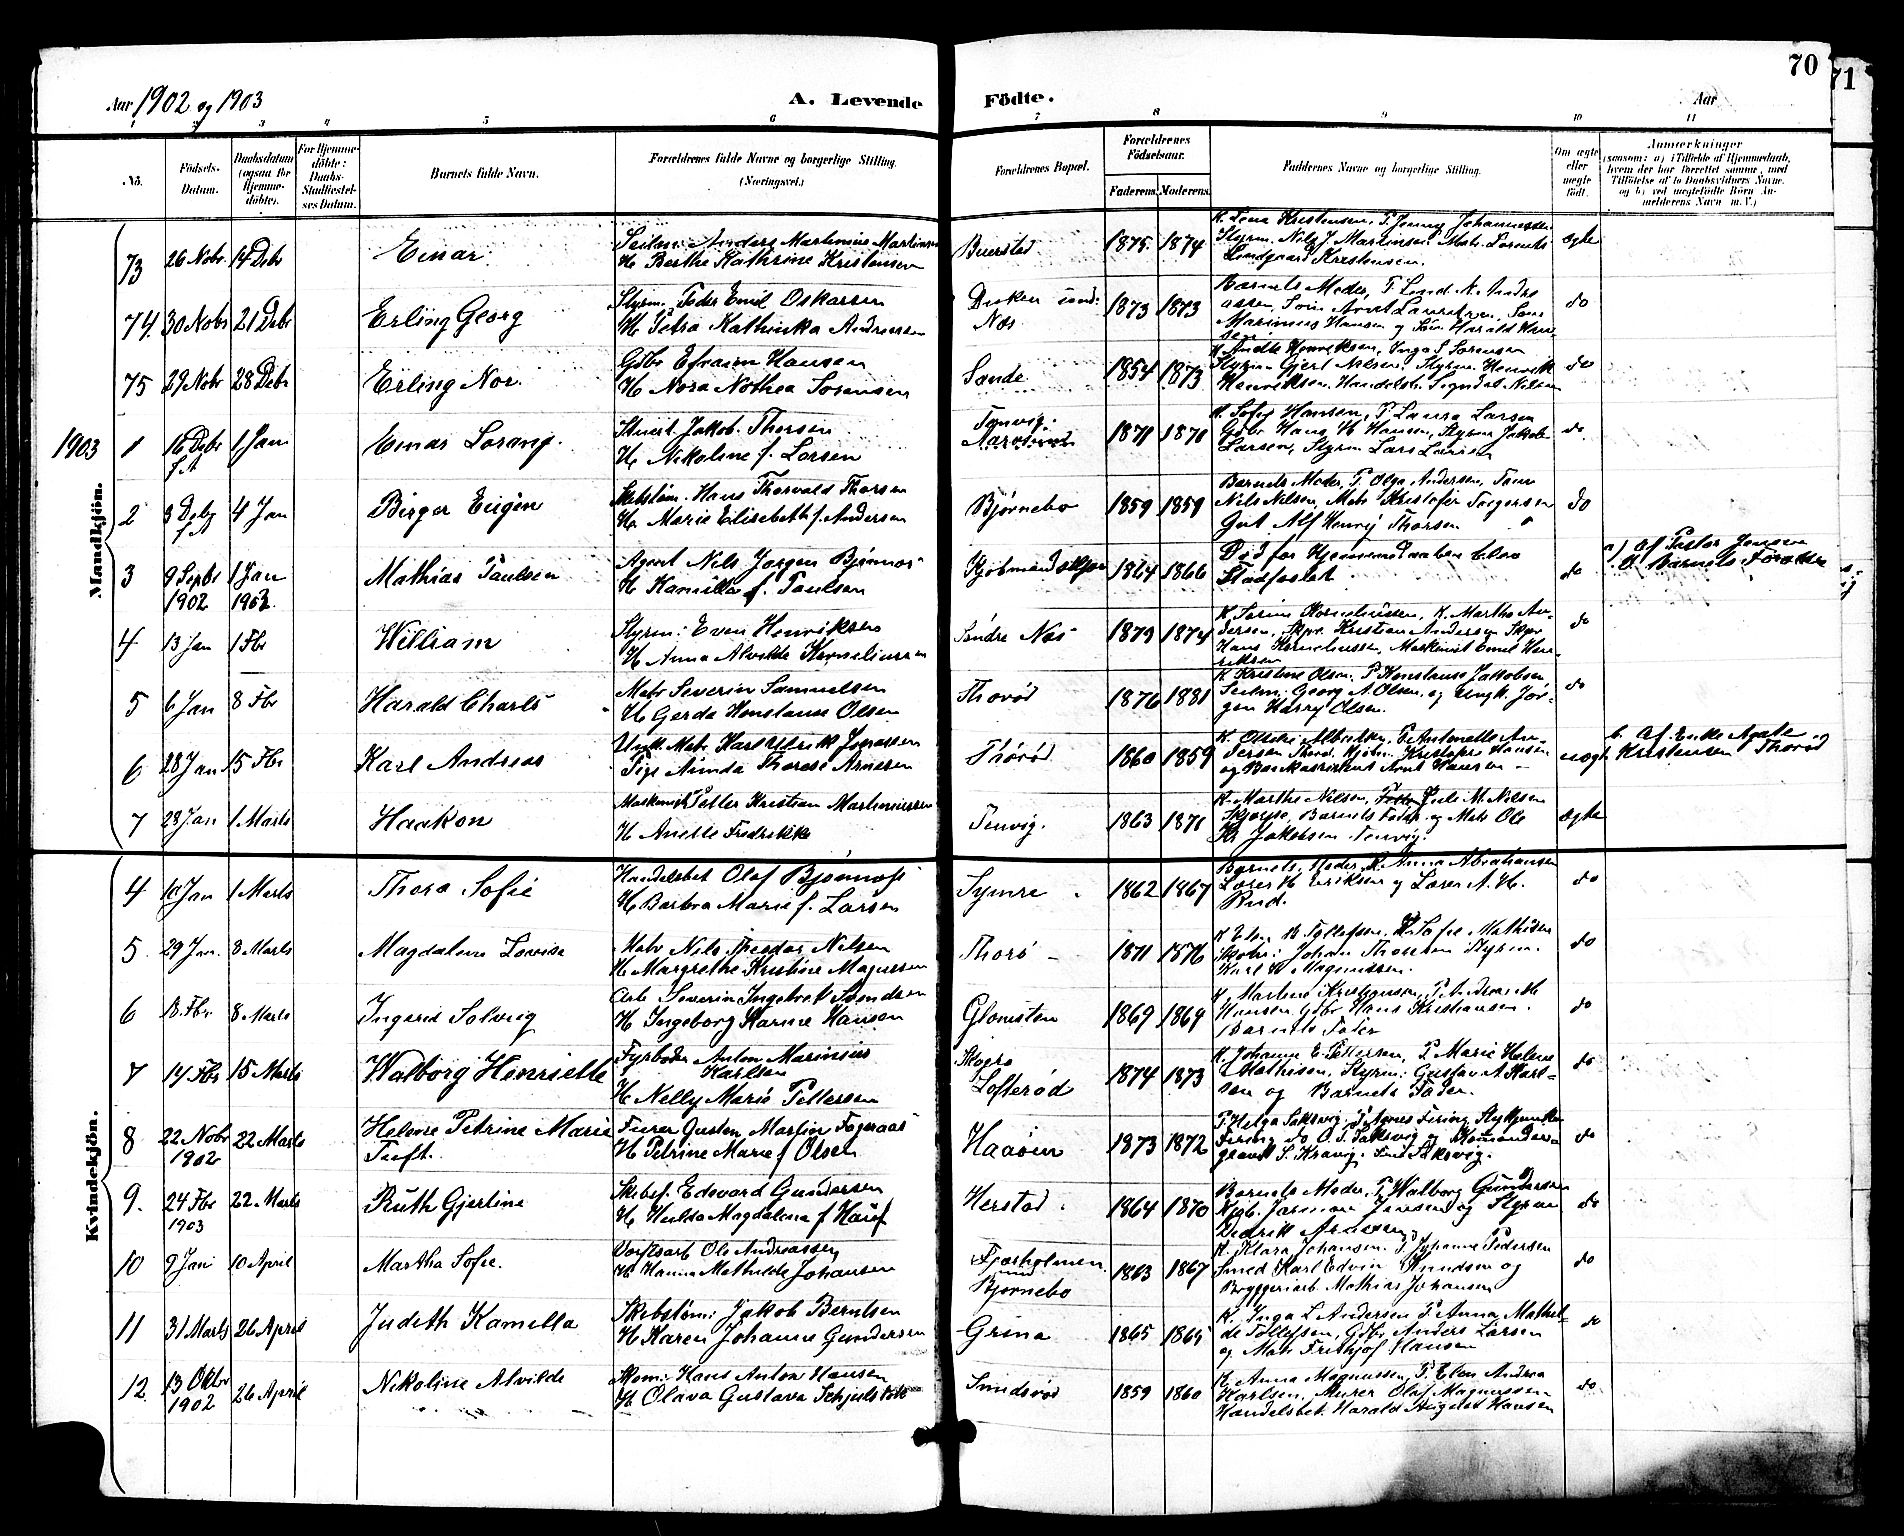 70
71
Aar 1902 og 1903
A. Levende Födte.
Aar
1 2 3 4 5 6 7 8 9 10 11
No.
Födsels-Datum.
Daabsdatum (ogsaa for Hjemmedöbte).
For Hjemmedöbte: Daabs-Stadfæstelses Datum.
Barnets fulde Navn.
Forældrenes fulde Navne og borgerlige Stilling. (Næringsvei.)
Forældrenes Bopæl.
Forældrenes Födselsaar.
Faderens. Moderens.
Faddernes Navne og borgerlige Stilling.
Om ægte eller uægte födt.
Anmærkninger (saasom: a) i Tilfælde af Hjemmedaab, hvem der har forrettet samme, med Tilföielse af to Daabsvidners Navne. og b) ved uægtefödte Börn Anmelderens Navn m. V.)
Mandkjön.
73 26 Nobr 14 Debr Einar
Seilm: Anders Martinius Martinsen
H Berthe Kathrine Kristensen
Buerstad 1875 1874
K. Lena Kristensen, P Jenny Johannessen
Styrm. Nils J Martinsen Matr. Lorents
Lindgaard Kristensen.
ægte
74. 30 Nobr 21 Debr Erling Georg
Styrm. Peder Emil Oskarsen
H Petra Kathinka Andreasen
Næs 1873 1873
Barnets Moder, P
Marinius Hansen og Harald
do
75 29 Nobr 28 Debr Erling Nor.
Gdbr Efraim Hansen
H Nora Nothea Sorensen
Sande 1854 1873
Henriksen, Inga S Sorensen
Styrm Gjert Nilsen, Styrm. Henrik
Henriksen, Handelsb. Signdal Nilsen
do
1903
1 16 Debr f.A 1 Jan Einar Lorang.
Stuert Jakob Thorsen
H Nikoline f. Larsen
Tenvig: 1871 1870
K. Sofie Hansen, P. Laura Larsen
Gdbr Hans H Hansen, Styrm Jakob
Larsen, Styrm Lars Larsen
do.
2 3 Debr f.A 4 Jan Birger Eugen
Skibstöm. Hans Thorvald Thorsen
H. Marie Elisabeth f. Andersen
Bjørnebo 1859 1859
Barnets Moder, P. Olga Andersen, Tøm
Nils Nilsen, Matr Kristofer Torgersen
Gut Alf Henry Thorsen
do
3 9 Septbr 1902 1 Jan 1903. Mathias Paulsen
Agent Nils Jørgen Bjønnes
H Kamilla f. Paulsen
1864 1866
Død før Hjemmedaaben blev
Stadfæstet.
do
a) Af Pastor Jensen
Barnets Forældre
4 13 Jan 1 Fbr William
Styrm: Even Henriksen
H Anna Alvilde Korneliussen
Søndre Nes 1879 1874
K. Korneliussen, K. Marthe Andersen, Skpr. Kristian Andersen Skpr
Hans Korneliussen, Maskinist Emil Henriksen
do
5 6 Jan 8 Fbr Harald Charls
Matr Severin Samuelsen
H Gerda Konstanse Olsen
Thorød 1876 1881
K Kristine Olsen P Konstanse Jakobsen
Seilm: Georg A. Olsen, og Ungk. Jörgen Harry Olsen.
do
6 28 Jan 15 Fbr Karl Andreas
Unk. Matr. Karl Ulrik Jonassen
Pige Ninda Therese Arnesen
Thørød 1860 1859
Antonette Andersen Thorød, Kristofer Hansen
og Bankassistent Arnt Hansen -
uægte
b. Af Enke Agate
Kristensen Thorød
7 28 Jan 1 Marts Haakon
Maskinist Petter Kristian Martiniussen
H Anette Fredrikke
Tenvig. 1863 1871
K. Marthe Nilsen, Juls M. Nilsen
Skjerpe, Barnets Fader og Matr Ole
Kr Jakobsen Tenvig.
ægte
Kvindekjön.
4 10 Jan 1 Marts Thora Sofie
Handelsbet Olaf Bjønnes
H Barbra Marie f. Larsen
Symre 1862 1867
Barnets Moder, P. Anna Abrahamsen
Lærer H Eriksen og Lærer A. H.
Rud.
do
5. 29 Jan. 8 Marts Magdalene Lovise
Matr Nils Theodor Nilsen
H Margrethe Kristine Magnussen
Thorø - 1871 1876
K Elen B Tollefsen, P Sofie Mathisen
Johan Thorsen Styrm.
Karl H Magnussen.
do
6 13 Fbr 8 Marts Ingarid Solveig
Arb Severin Ingebret Svendsen
H Ingeborg Karine Hansen
Glomsten 1869 1869
K Marlene Kristiansen, P Andrea M
Hansen Gdbr Hans Kristiansen.
Barnets Fader
do
7 14 Fbr 15 Marts Walborg Henriette
Fyrbøder Anton Marinius
Karlsen
H Nelly Marie Pettersen
Skogro
Lofterød 1874 1873
K. Johanne E. Pettersen, P Marie Helene
Mathisen, Styrm: Gustav A Karlsen og Barnets Fader.
do
8 22 Nobr 1902 22 Marts Helene Petrine Marie
Tuft.
Furer Gustav Martin Fognaas
H Petrine Marie f Olsen
Haaøen 1873 1872
P Helga Saksvig, P Agnes Fering
Fering do O. T. Saksvig og
S. Kravig.
do
9. 24 Fbr 1903 22 Marts Ruth Gjertine
Skibsf. Edevard Gundersen
H Hulda Magdalena f Hauf
Herstad. 1864 1870
Barnets Moder, P Walborg Gundersen
Kjøb. Jensen og Styrm
Didrik Arnesen
do
10 9 Jan 10 April Martha Sofie.
Værftsarb Ole Andreassen
H Hanna Mathilde Johansen
Fjærholmen
Bjørnebo 1863 1867
K. Klara Johansen. P. Johanne Pedersen
Smed Karl Edvin Knudsen og
Bryggeriarb Mathias Johansen
do
11 31 Marts 26 April Judith Kamilla
Skibstöm: Jakob Berntsen
H Karen Johanne Gundersen
Grina 1865 1865
K. Inga L Andersen P Anna Mathilde Tollefsen, Gdbr Anders Larsen
og Matr Frithjof Hansen
do
12. 13 Oktbr 1902 26 April Nikoline Alvilde
Skom: Hans Anton Hansen
H Olava Gustava
Sundsrød 1859 1860
K. Anna Magnussen, P. Elen Andrea
Karlsen, Murer Olaf Magnussen
Handelsbet. Harald August Hansen
do